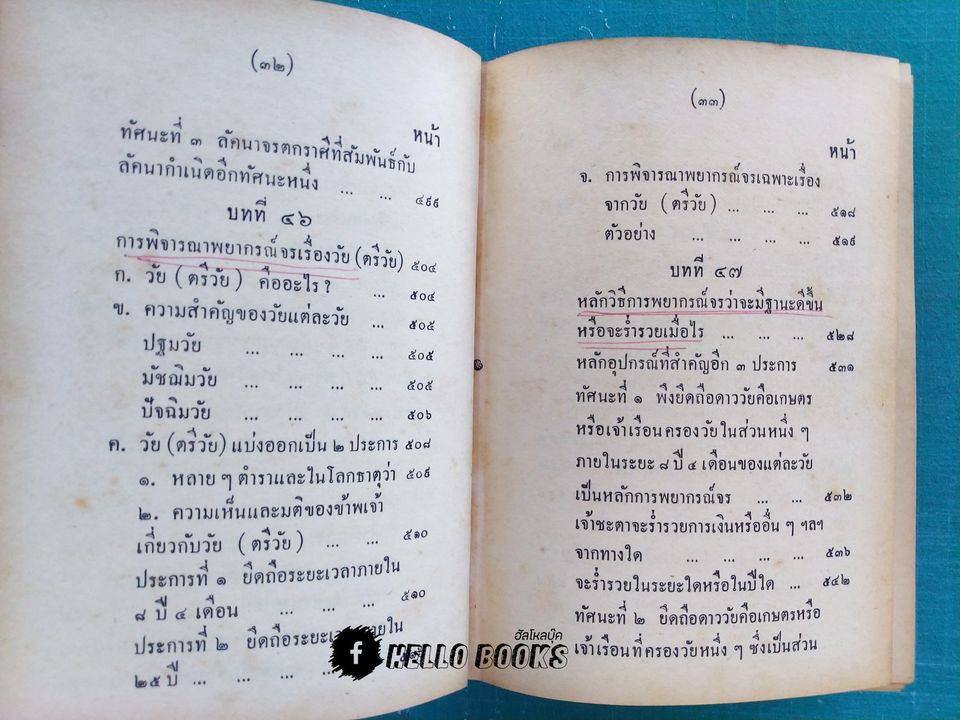 (๓๒)
หน้า
ทัศนะที่ ๓ ลัคนาจรตกราศีที่สัมพันธ์กับ
ลัคนากำเนิดอีกทัศนะหนึ่ง ... ... ๔๙๙
บทที่ ๔๖
การพิจารณาพยากรณ์จรเรื่องวัย (ตรีวัย) ๕๐๔
ก. วัย (ตรีวัย) คืออะไร ? ... ๕๐๔
ข. ความสำคัญของวัยแต่ละวัย ... ๕๐๕
ปฐมวัย ... ... ... ... ๕๐๕
มัชฌิมวัย ... ... ... ... ๕๐๕
ปัจฉิมวัย ... ... ... ... ๕๐๖
ค. วัย (ตรีวัย) แบ่งออกเป็น ๒ ประการ ๕๐๘
๑. หลาย ๆ ตำราและในโลกธาตุว่า ๕๐๙
๒. ความเห็นและมติของข้าพเจ้า
เกี่ยวกับวัย (ตรีวัย) ... ... ๕๑๐
ประการที่ ๑ ยึดถือระยะเวลาภายใน
๘ ปี ๔ เดือน ... ... ... ๕๑๐
ประการที่ ๒ ยึดถือระยะเวลาภายใน
๒๕ ปี ... ... ... ...
(๓๓)
หน้า
จ. การพิจารณาพยากรณ์จรเฉพาะเรื่อง
จากวัย (ตรีวัย) ... ... ... ๕๑๘
ตัวอย่าง ... ... ... ... ๕๑๙
บทที่ ๔๗
หลักวิธีการพยากรณ์จรว่าจะมีฐานะดีขึ้น
หรือจะร่ำรวยเมื่อไร ... ... ... ๕๒๘
หลักอุปกรณ์ที่สำคัญอีก ๓ ประการ ๕๓๑
ทัศนะที่ ๑ พึงยึดถือดาววัยคือเกษตร
หรือเจ้าเรือนครองวัยในส่วนหนึ่ง ๆ
ภายในระยะ ๘ ปี ๔ เดือนของแต่ละวัย
เป็นหลักการพยากรณ์จร ... ... ๕๓๒
เจ้าชะตาจะร่ำรวยการเงินหรืออื่น ๆ ฯลฯ
จากทางใด ... ... ... ... ๕๓๖
จะร่ำรวยในระยะใดหรือในปีใด ... ๕๔๒
ทัศนะที่ ๒ ยึดถือดาววัยคือเกษตรหรือ
เจ้าเรือนที่ครองวัยหนึ่ง ๆ ซึ่งเป็นส่วน
ฮัลโหลบุ๊ค
f HELLO BOOKS